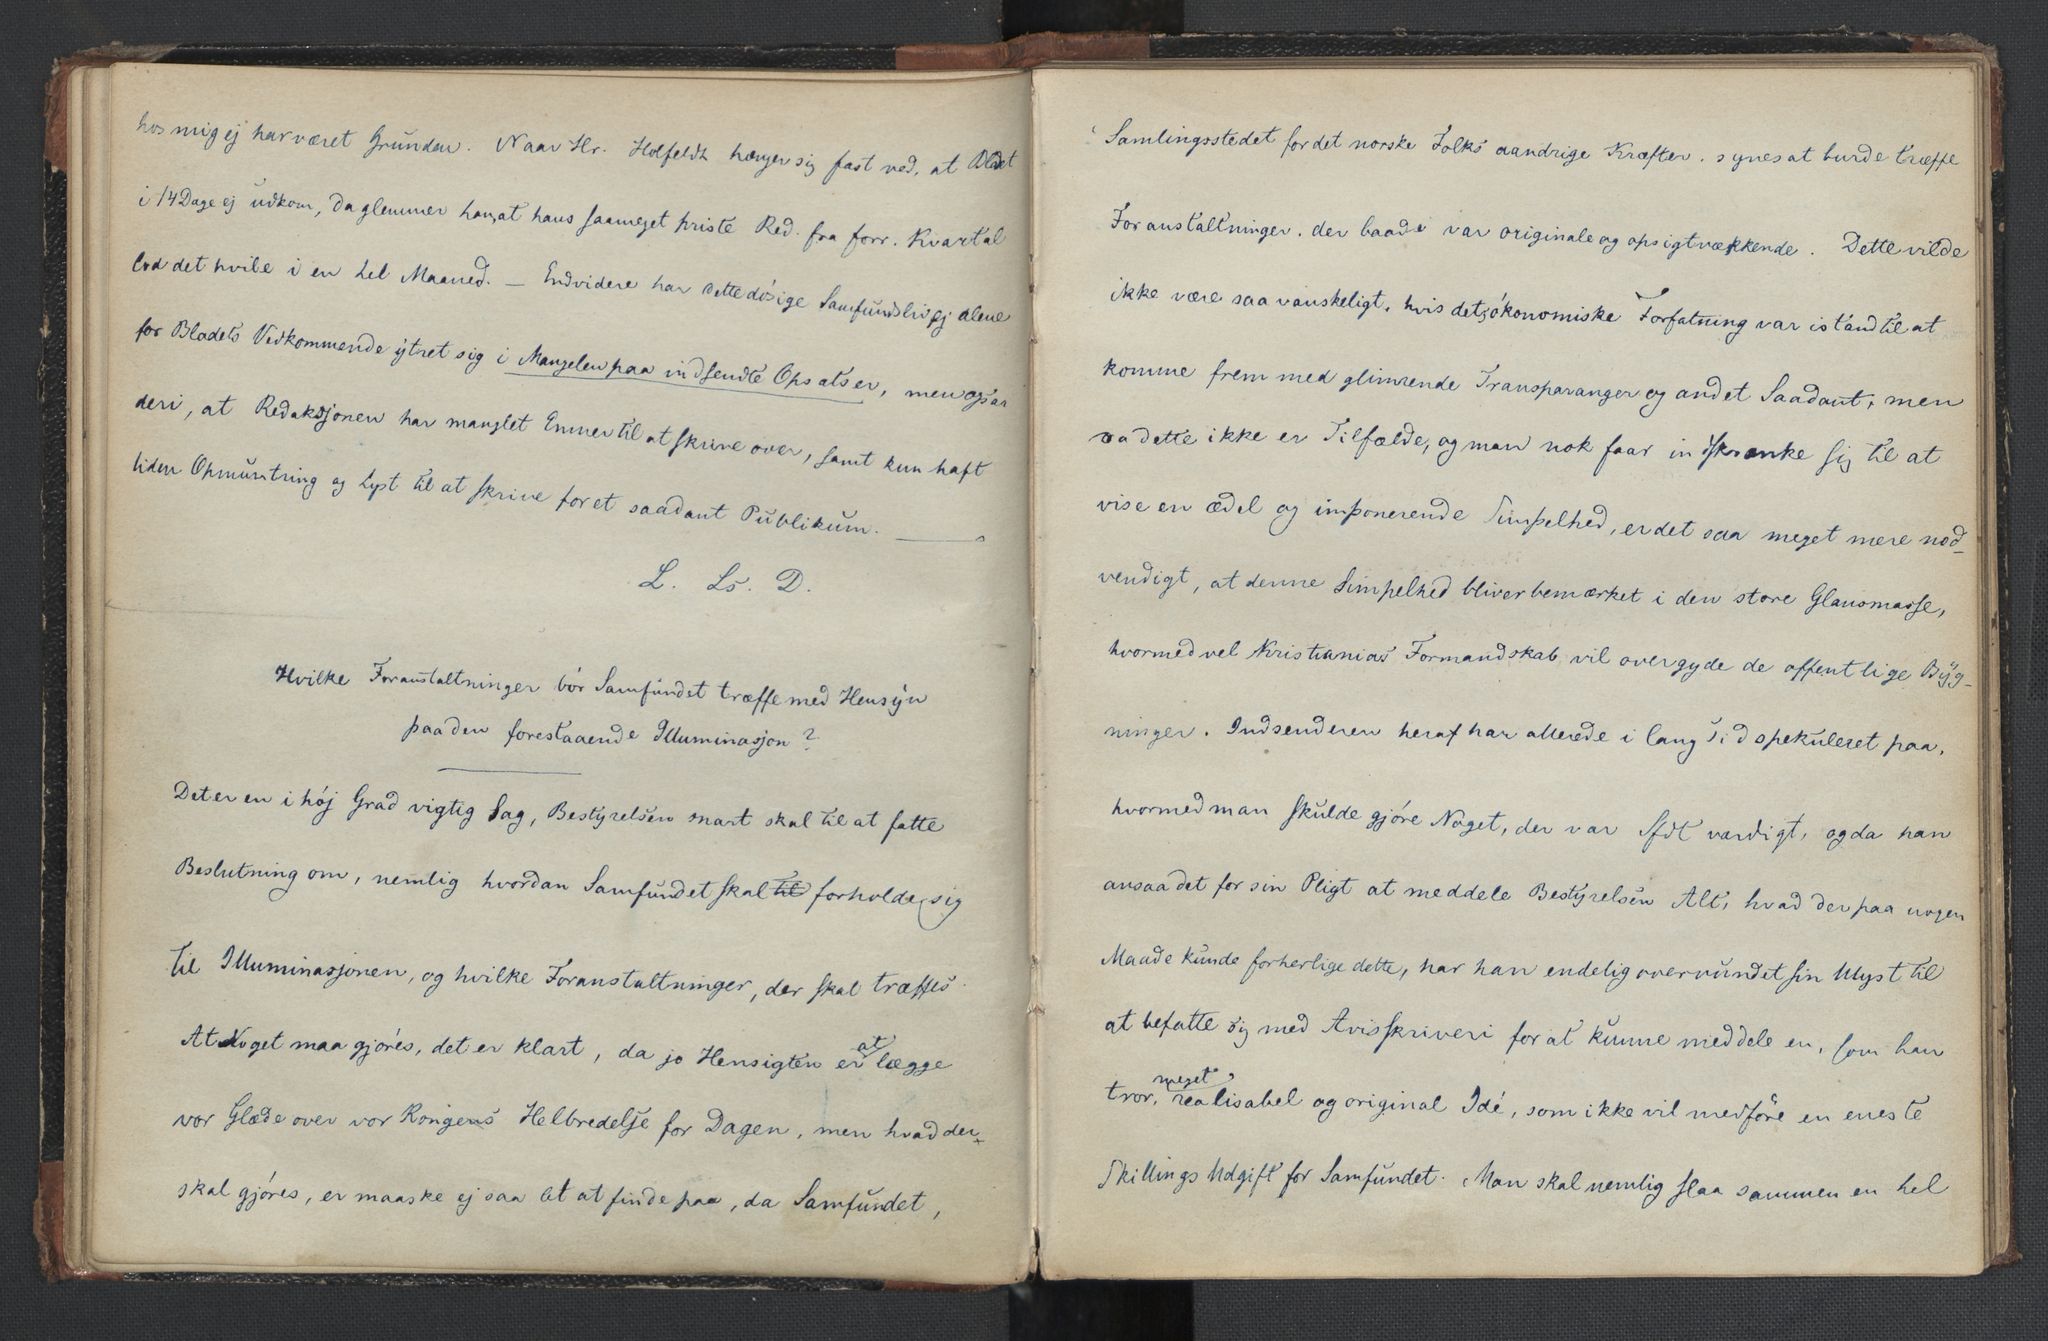 hos mig ej har været Grunden. Naar Hr. Holfeldt hænger sig fast ved, at Bladet
i 14 Dage ej udkom, da glemmer han, at hans saameget priste Red. fra forr. Kvartal
lod det hvile i en hel Maaned. — Endvidere har dette døsige Samfundsliv ej alene
for Bladets Vedkommende ytret sig i Mangelen paa indsendte Opsatser, men også
deri, at Redaksjonen har manglet Emner til at skrive over, samt kun haft
liden Opmuntring og Lyst til at skrive for et saadant Publikum. —
L. Ls. D.
Hvilke Foranstaltninger bör Samfundet træffe med Hensyn
paa den forestaaende Illuminasjon?
Det er en i höj Grad vigtig Sag, Bestyrelsen snart skal til at fatte
Beslutning om, nemlig hvordan Samfundet skal til forholde sig
til Illuminasjonen, og hvilke Foranstaltninger, der skal træffes.
At Noget maa gjöres, det er klart, da jo Hensigten er at lægge
vor Glæde over vor Konges Helbredelse for Dagen, men hvad der
skal gjöres, er maaske ej saa let at finde paa, da Samfundet,
Samlingsstedet for det norske Folks aandrige Kræfter, synes at burde træffe
Foranstaltninger, der baade var originale og opsigtvækkende. Dette vilde
ikke være saa vanskeligt, hvis dets ökonomiske Forfatning var istand til at
komme frem med glimrende Transparanger og andet Saadant, men
da dette ikke er Tilfælde, og man nok faar indskrænke sig til at
vise en ædel og imponerende Simpelhed, er det saa meget mere nöd-
vendigt, at denne Simpelhed bliver bemærket i den store Glansmasse,
hvormed vel Kristianias Formandskab vil overgyde de offentlige Byg-
ninger. Indsenderen heraf har allerede i lang Tid spekuleret paa,
hvormed man skulde gjöre Noget, der var Sfdt værdigt, og da han
ansaa det for sin Pligt at meddele Bestyrelsen Alt, hvad der paa nogen
Maade kunde forherlige dette, har han endelig overvundet sin Ulyst til
at befatte sig med Avisskriveri for at kunne meddele en, som han
tror, meget realisabel og original Idé, som ikke vil medföre en eneste
Skillings Udgift for Samfundet. Man skal nemlig slaa sammen en hel